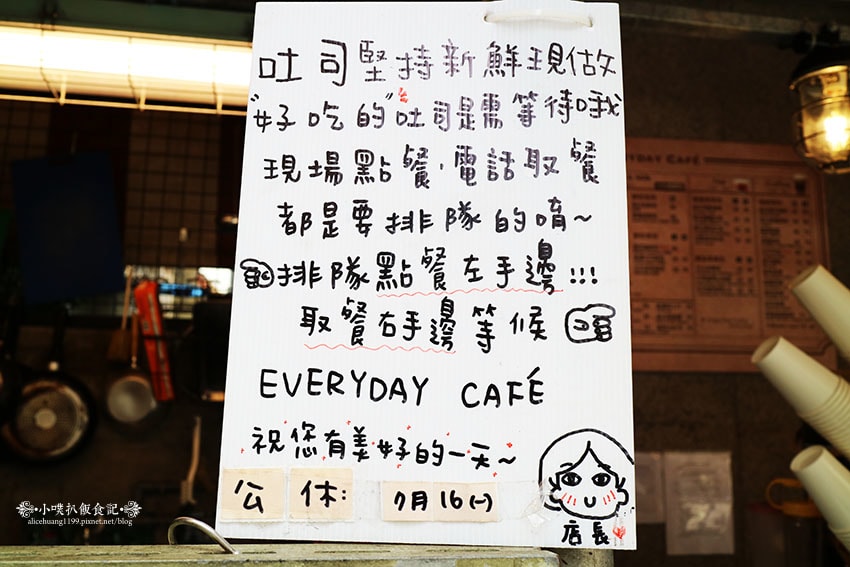 吐司堅持新鮮現做
"好吃的"吐司是需等待哦
現場點餐.電話取餐
都是要排隊的唷~
排隊點餐左手邊!!!
取餐右手邊等候
EVERYDAY CAFÉ
祝您有美好的一天~
公休: 7月16(一)
店長
EVERYDAY CAFÉ
小噗扒飯食記
alicehuang1199.pixnet.net/blog